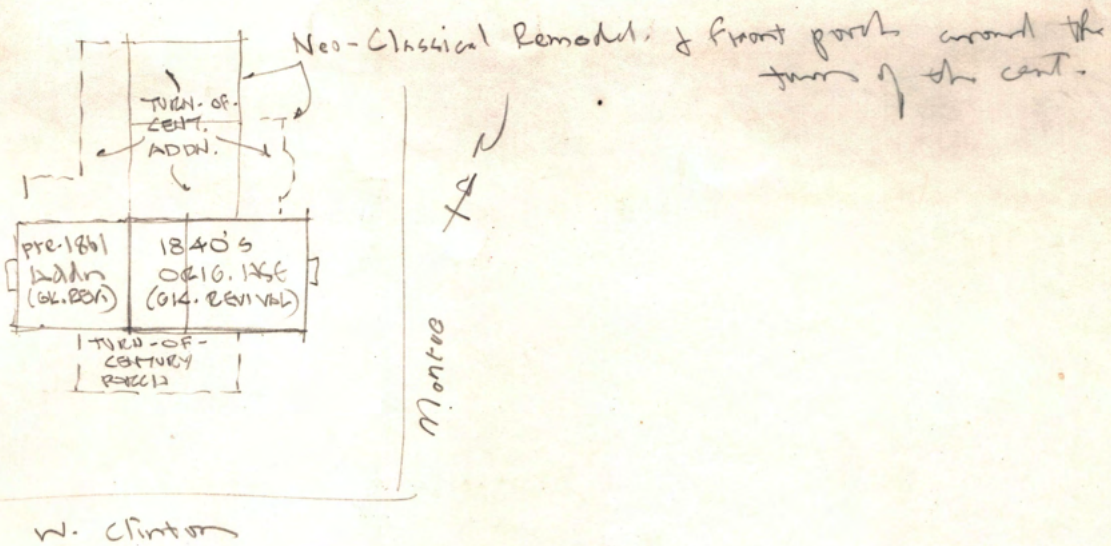 Neo-Classical Remodel. & front porch around the
turn of the cent.
TURN-OF-
CENT.
ADDN.
N
pre-1861
Addn
(GK. REV.)
1840's
ORIG. HSE
(GK. REVIVAL)
TURN-OF-
CENTURY
PORCH
Monroe
W. Clinton